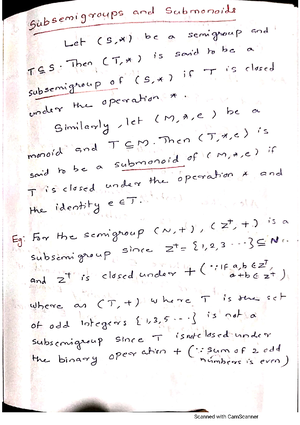 Subsemigroups and Submonoids
Let (S,*) be a semigroup and
T⊆S. Then (T,*) is said to be a
subsemigroup of (S,*) if T is closed
under the operation *.
Similarly, let (M,*,e) be a
monoid and T⊆M. Then (T,*,e) is
said to be a submonoid of (M,*,e) if
T is closed under the operation * and
the identity e∈T.
Eg: For the semigroup (N,+), (Z⁺,+) is a
subsemigroup since Z⁺={1,2,3...}⊆N..
and Z⁺ is closed under + (∵ if a,b∈Z⁺,
a+b∈Z⁺)
where as (T,+) where T is the set
of odd integers {1,3,5...} is not a
subsemigroup since T is not closed under
the binary operation + (∵ sum of 2 odd
numbers is even)
Scanned with CamScanner